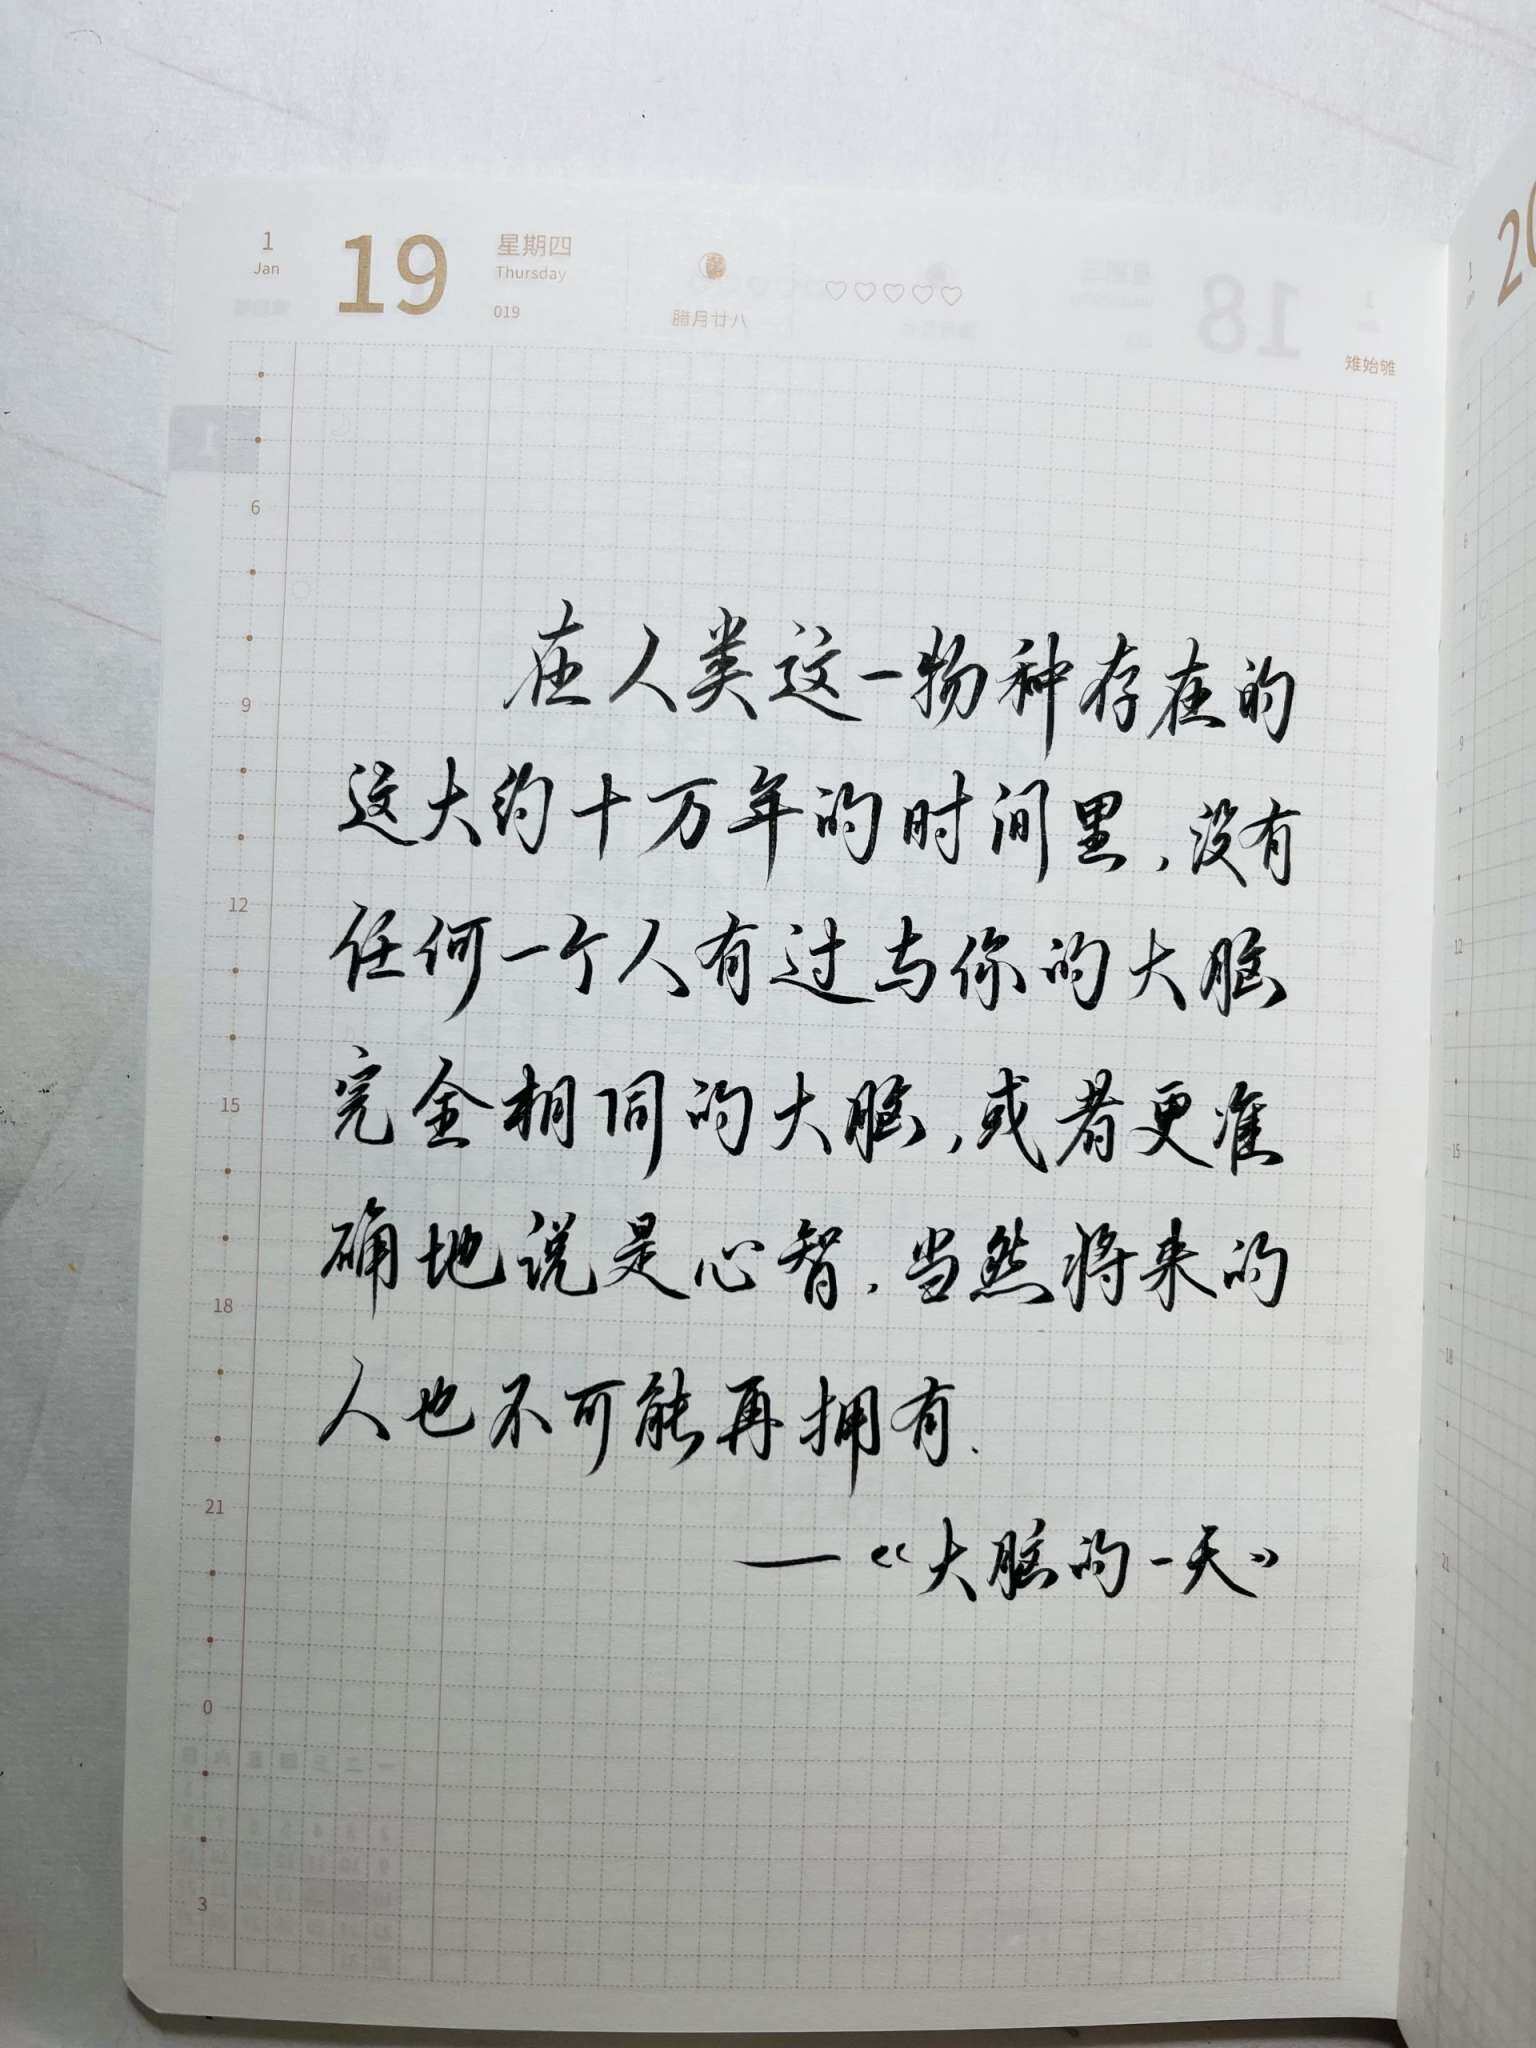 1
Jan
19
星期四
Thursday
019
腊月廿八
18
雉始雊
1
6
9
12
15
18
21
0
3
在人类这一物种存在的
这大约十万年的时间里,没有
任何一个人有过与你的大脑
完全相同的大脑,或者更准
确地说是心智,当然将来的
人也不可能再拥有.
—《大脑的一天》
20
6
9
12
15
18
21